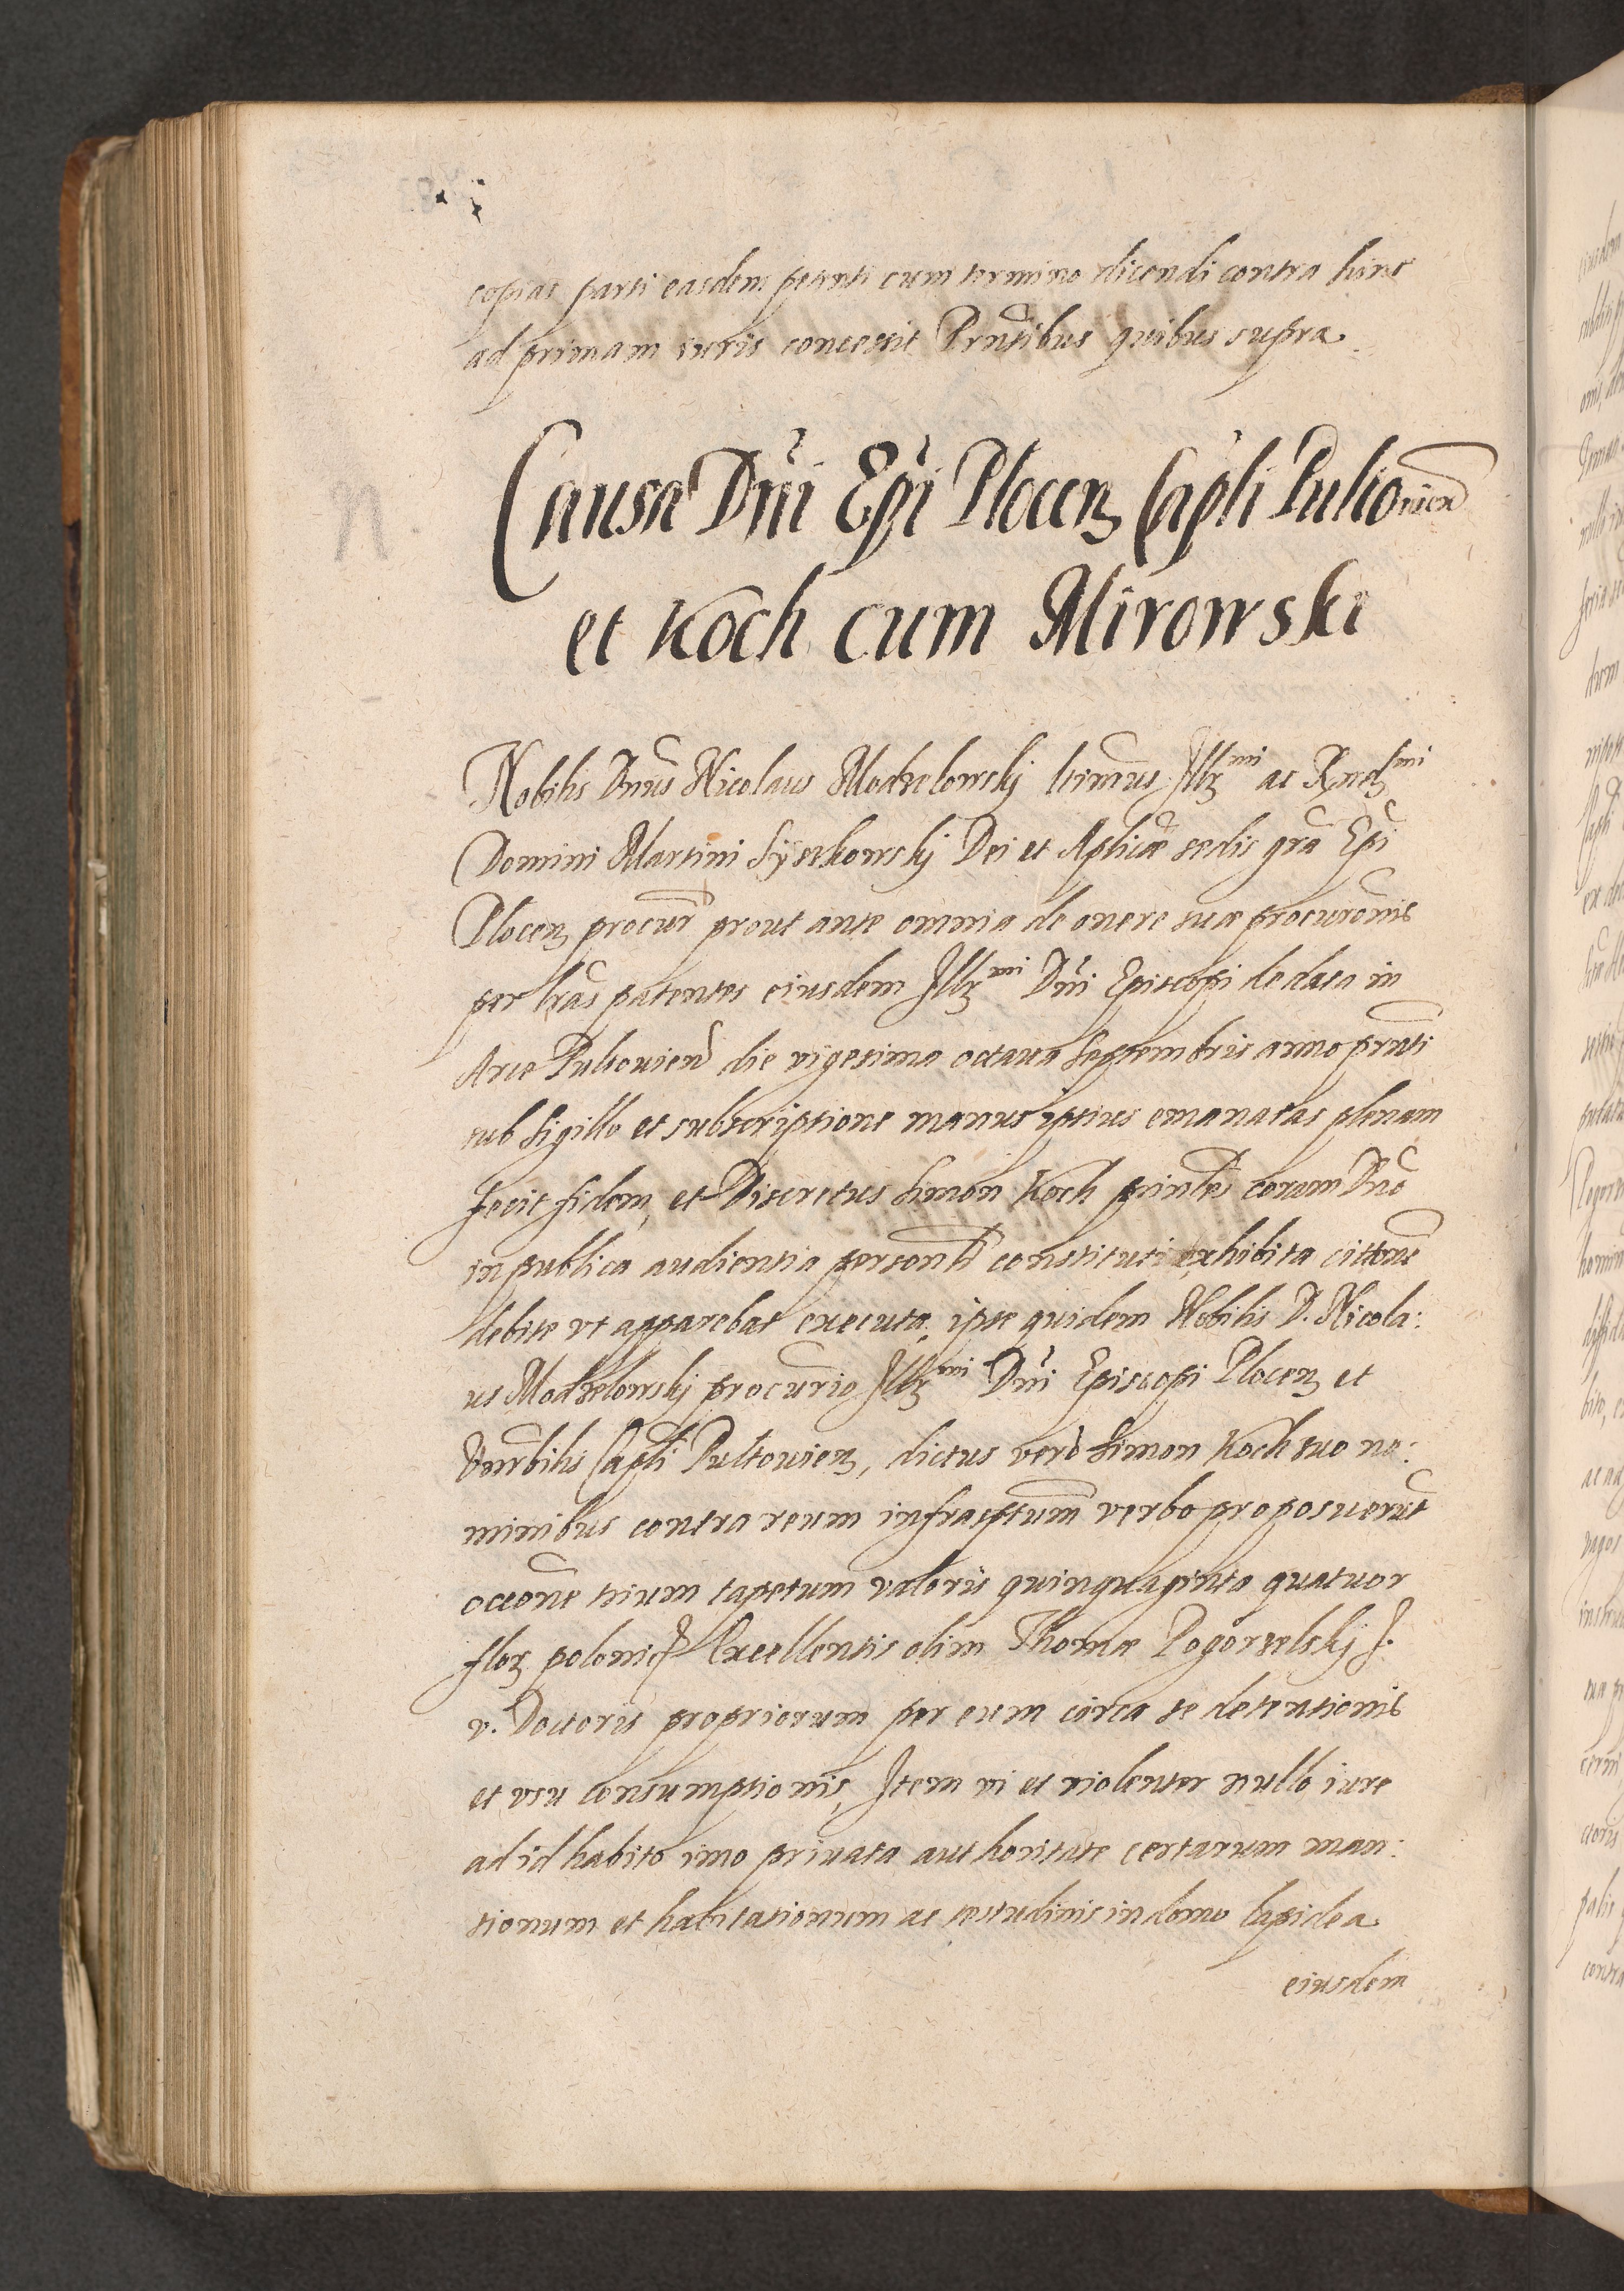 copias parti easdem petenti cum termino dicendi contra hinc
ad primam iuris concessit Prñtibus quibus supra.
Causa Dñi Epi Plocen Capli Pultouien
et Koch cum Mirowski
N
Nobilis Dñus Nicolaus Modzelowskj Illmi ac Rndmi
Domini Martini Syszkowskj Dei et Aplicæ sedis grã Epi
Plocen procur prout ante omnia de onere suæ procurõnis
per lrãs patentes eiusdem Illmi Dñi Episcopi de data in
Arce Pultouien die vigesima octaua Septembris anno prnti
sub sigillo et subscriptione manus ipsius emanatas plenam
fecit fidem, et Discretus Simon Koch coram Dño
in publica audientia personlr constituti exhibita cittõne
debite vt apparebat executa, ipse quidem Nobilis D. Nicola:
us Modzelowskj procurio Illmi Dñi Episcopi Plocen et
Vnrbilis Capli Pultouien, dictus verò Simon Koch suo no:
minibus contra reum infrascptum verbo proposuerũt
occõne trium tapetum valoris quinquaginta quatuor
flor polonic Excellentis olim Thomæ Pogorzelskj J.
v. Doctoris propriorum per eum circa se detentionis
et vsu consumptionis, Item vi et violenter nullo iure
ad id habito imo priuata authoritate certarum man:
sionum et habitationum ac testudinis in domo lapidea
eiusdem